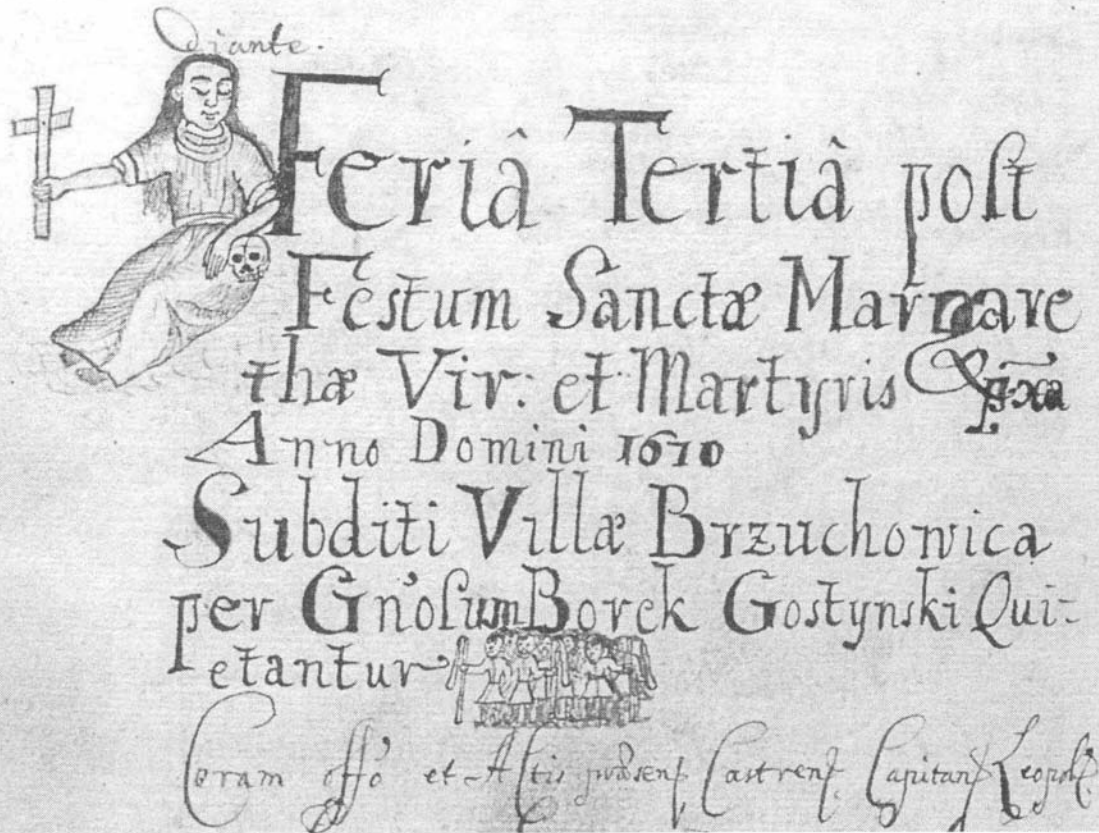 Feriâ Tertiâ post
Festum Sanctæ Margare
thæ Vir: et Martyris
Anno Domini 1670
Subditi Villæ Brzuchowica
per Gn'osum Borek Gostynski Qui-
etantur
Coram offo et Actis præsent Castren Capitan Leopol